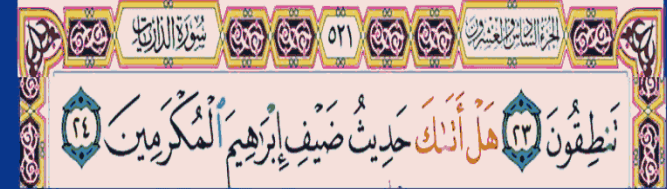 الجزء السادس والعشرون ٥٢١ سورة الذاريات
تَنطِقُونَ ٢٣ هَلْ أَتَىٰكَ حَدِيثُ ضَيْفِ إِبْرَٰهِيمَ ٱلْمُكْرَمِينَ ٢٤